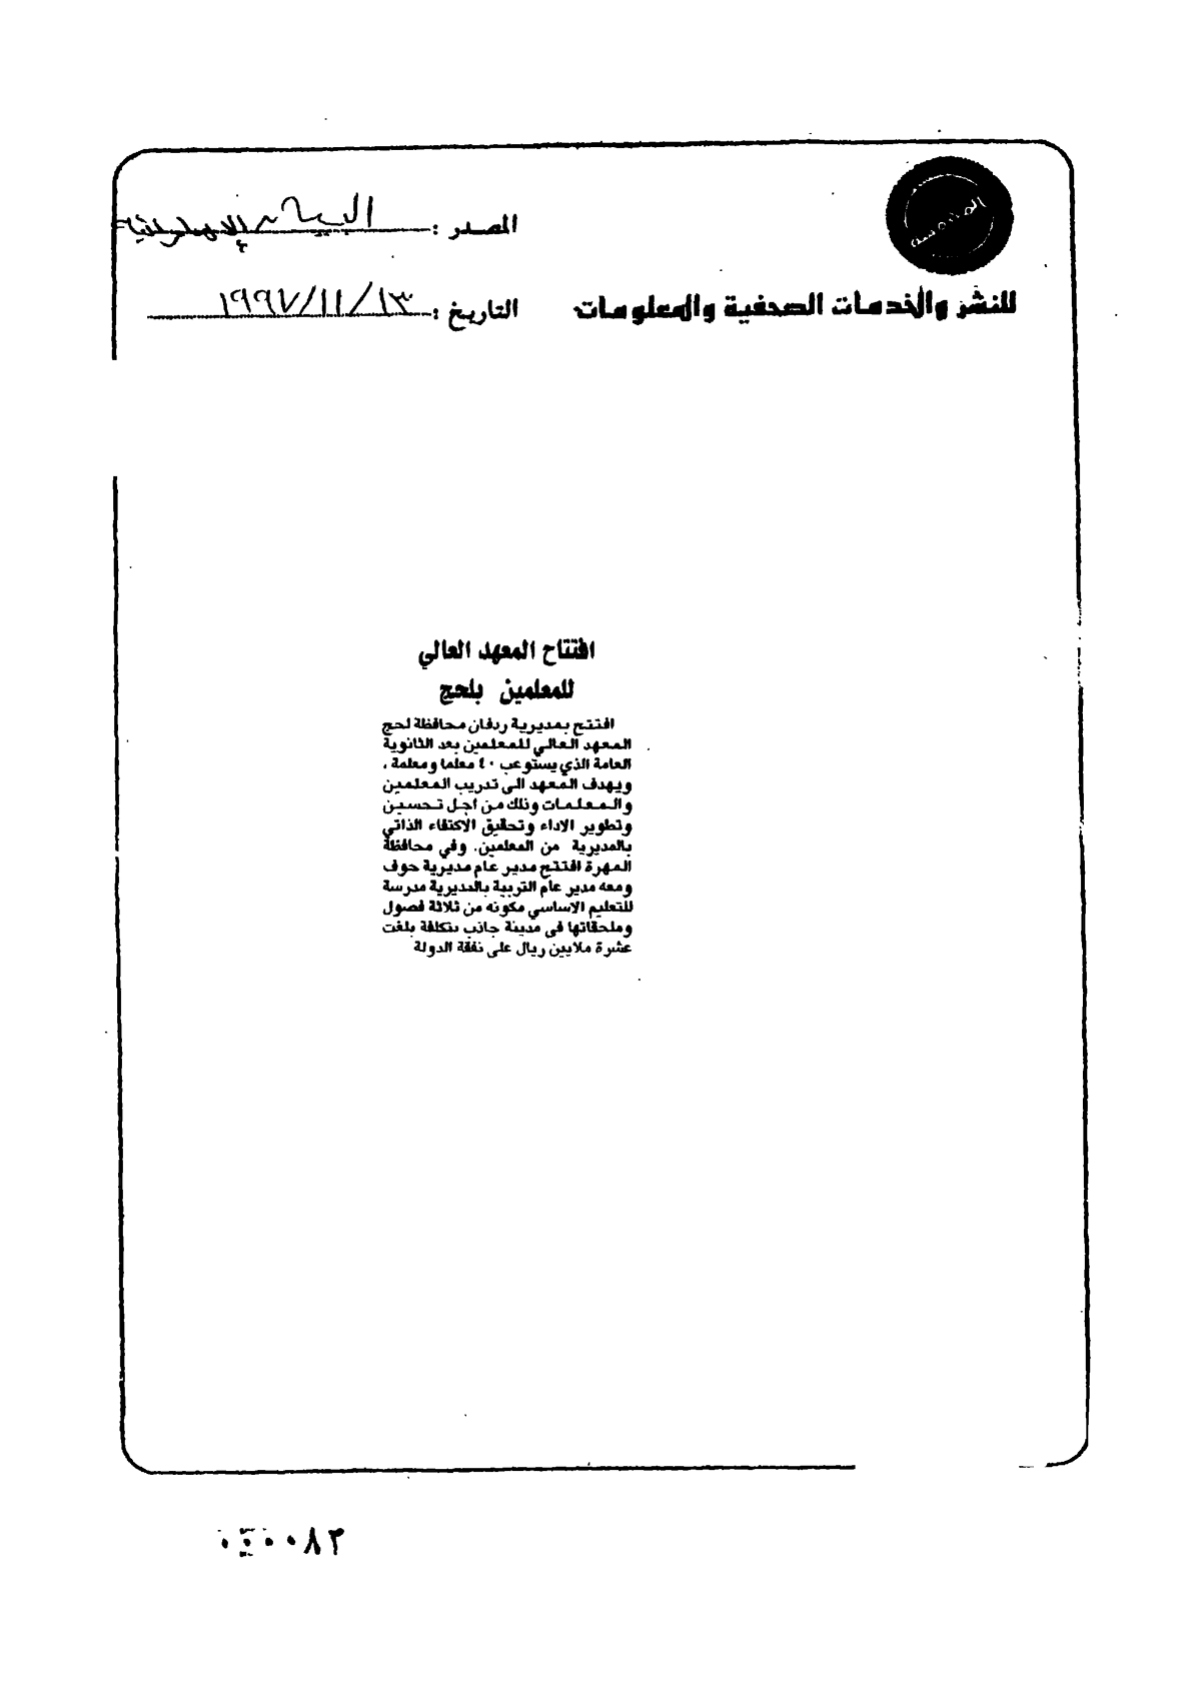 المصدر : البيان الإماراتية
للنشر والخدمات الصحفية والمعلومات
التاريخ : ١٩٩٧/١١/١٣
افتتاح المعهد العالي
للمعلمين بلحج
افتتح بمديرية ردفان محافظة لحج
المعهد العالي للمعلمين بعد الثانوية
العامة الذي يستوعب ٤٠ معلما ومعلمة ،
ويهدف المعهد الى تدريب المعلمين
والمعلمات وذلك من اجل تحسين
وتطوير الاداء وتحقيق الاكتفاء الذاتي
بالمديرية من المعلمين. وفي محافظة
المهرة افتتح مدير عام مديرية حوف
ومعه مدير عام التربية بالمديرية مدرسة
للتعليم الاساسي مكونه من ثلاثة فصول
وملحقاتها فى مدينة جاذب بتكلفة بلغت
عشرة ملايين ريال على نفقة الدولة